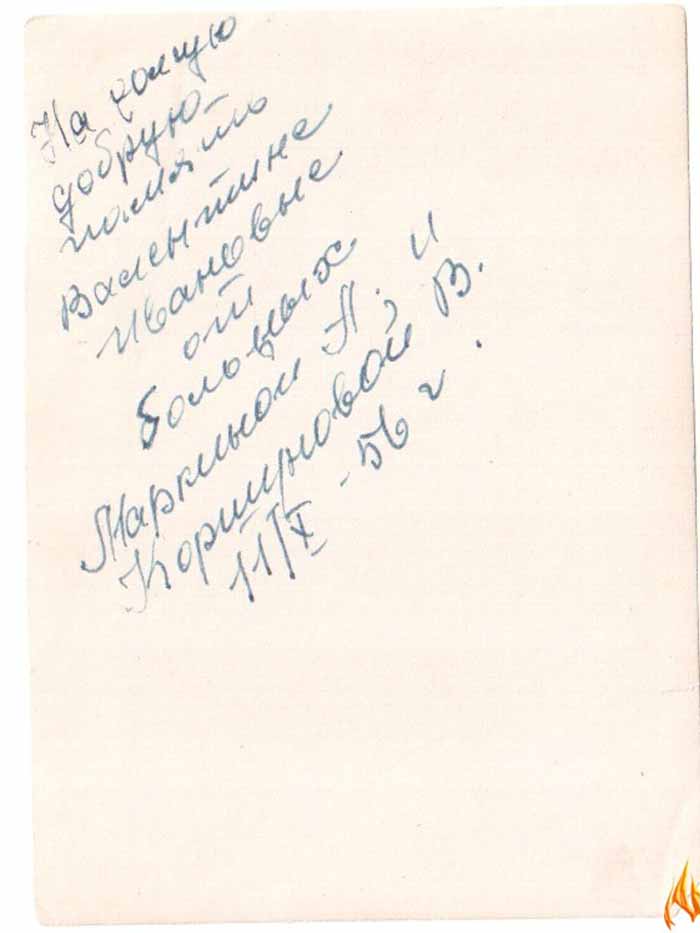 На долгую
добрую
память
Валентине
Ивановне
от
больных
Маркиной А. и
Коршуновой В.
11/X - 56 г.